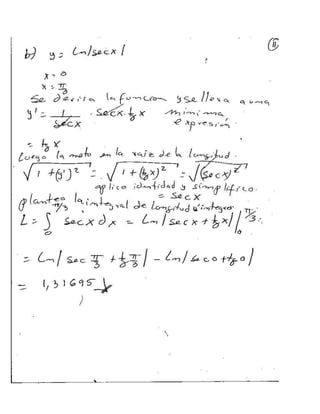 b) y = Ln|secx|
11
x = 0
x = π/3
Se deriva la funcion y se lleva a una
y' = 1/secx · secx·tgx minima expresión.
= tgx
Luego la meto en la raiz de la longitud.
√(1+(y')²) = √(1+(tgx)²) = √(secx)²
aplico identidad y simplifico.
= secx
planteo la integral de longitud e integro
L = ∫₀^π/3 secx dx = Ln|secx + tgx| |₀^π/3 ∴
= Ln|sec π/3 + tg π/3| - Ln|sec0+tg0|
= 1,31695